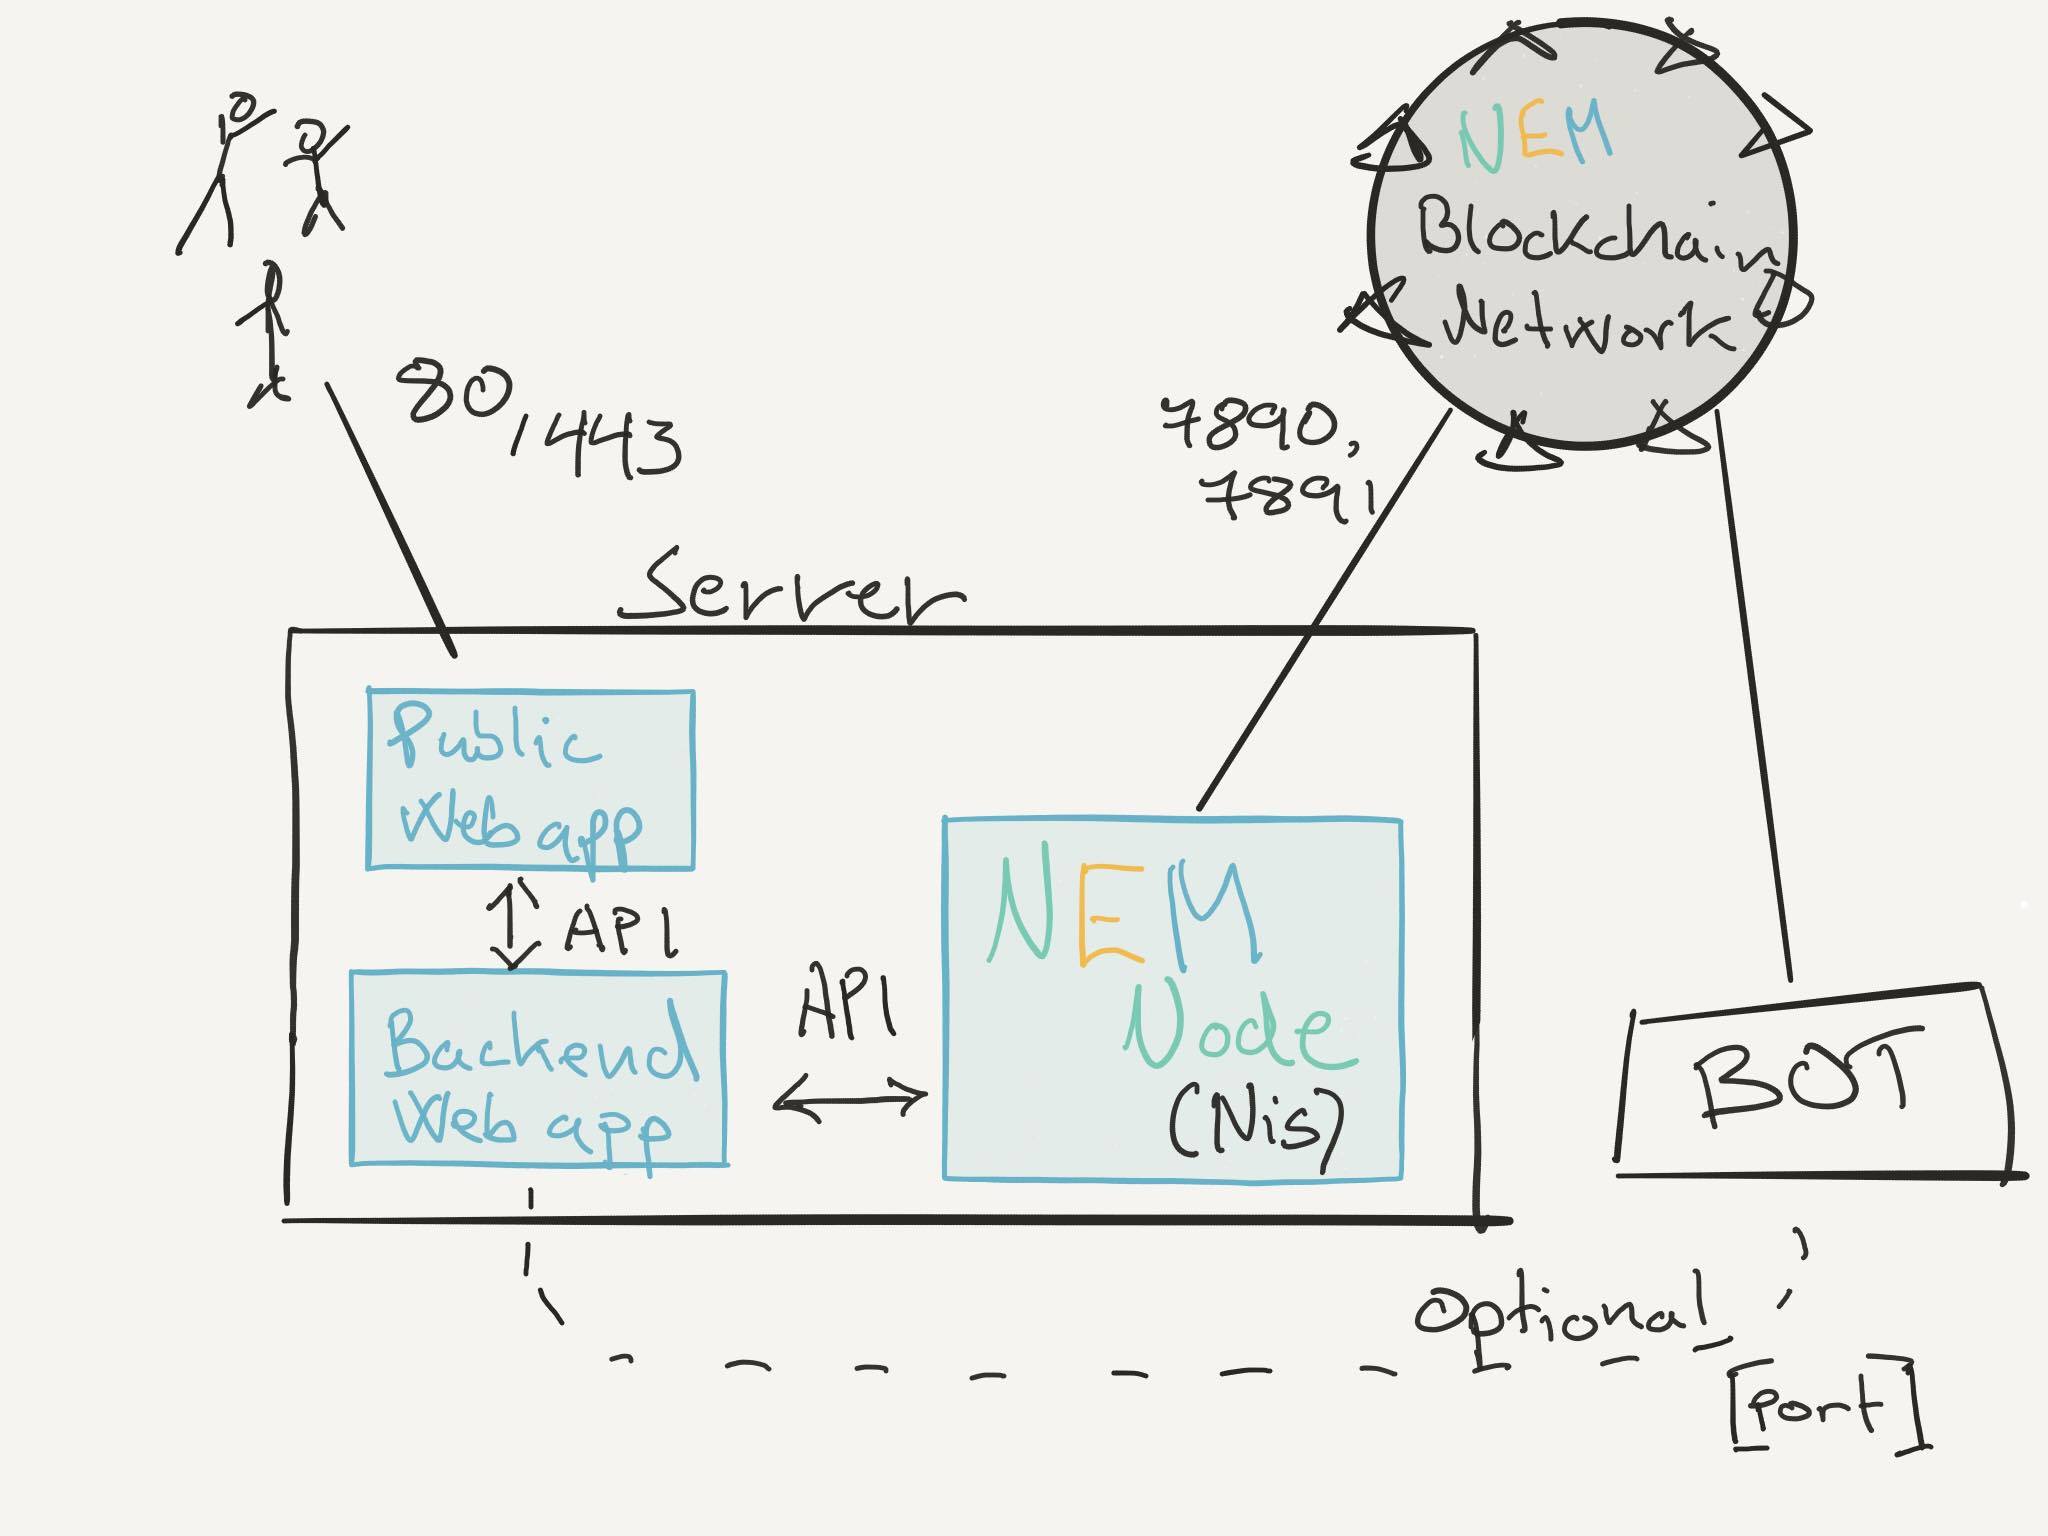 NEM
Blockchain
Network
80, 443
7890,
7891
Server
Public
Web app
API
Backend
Web app
API
NEM
Node
(Nis)
BOT
optional
[port]